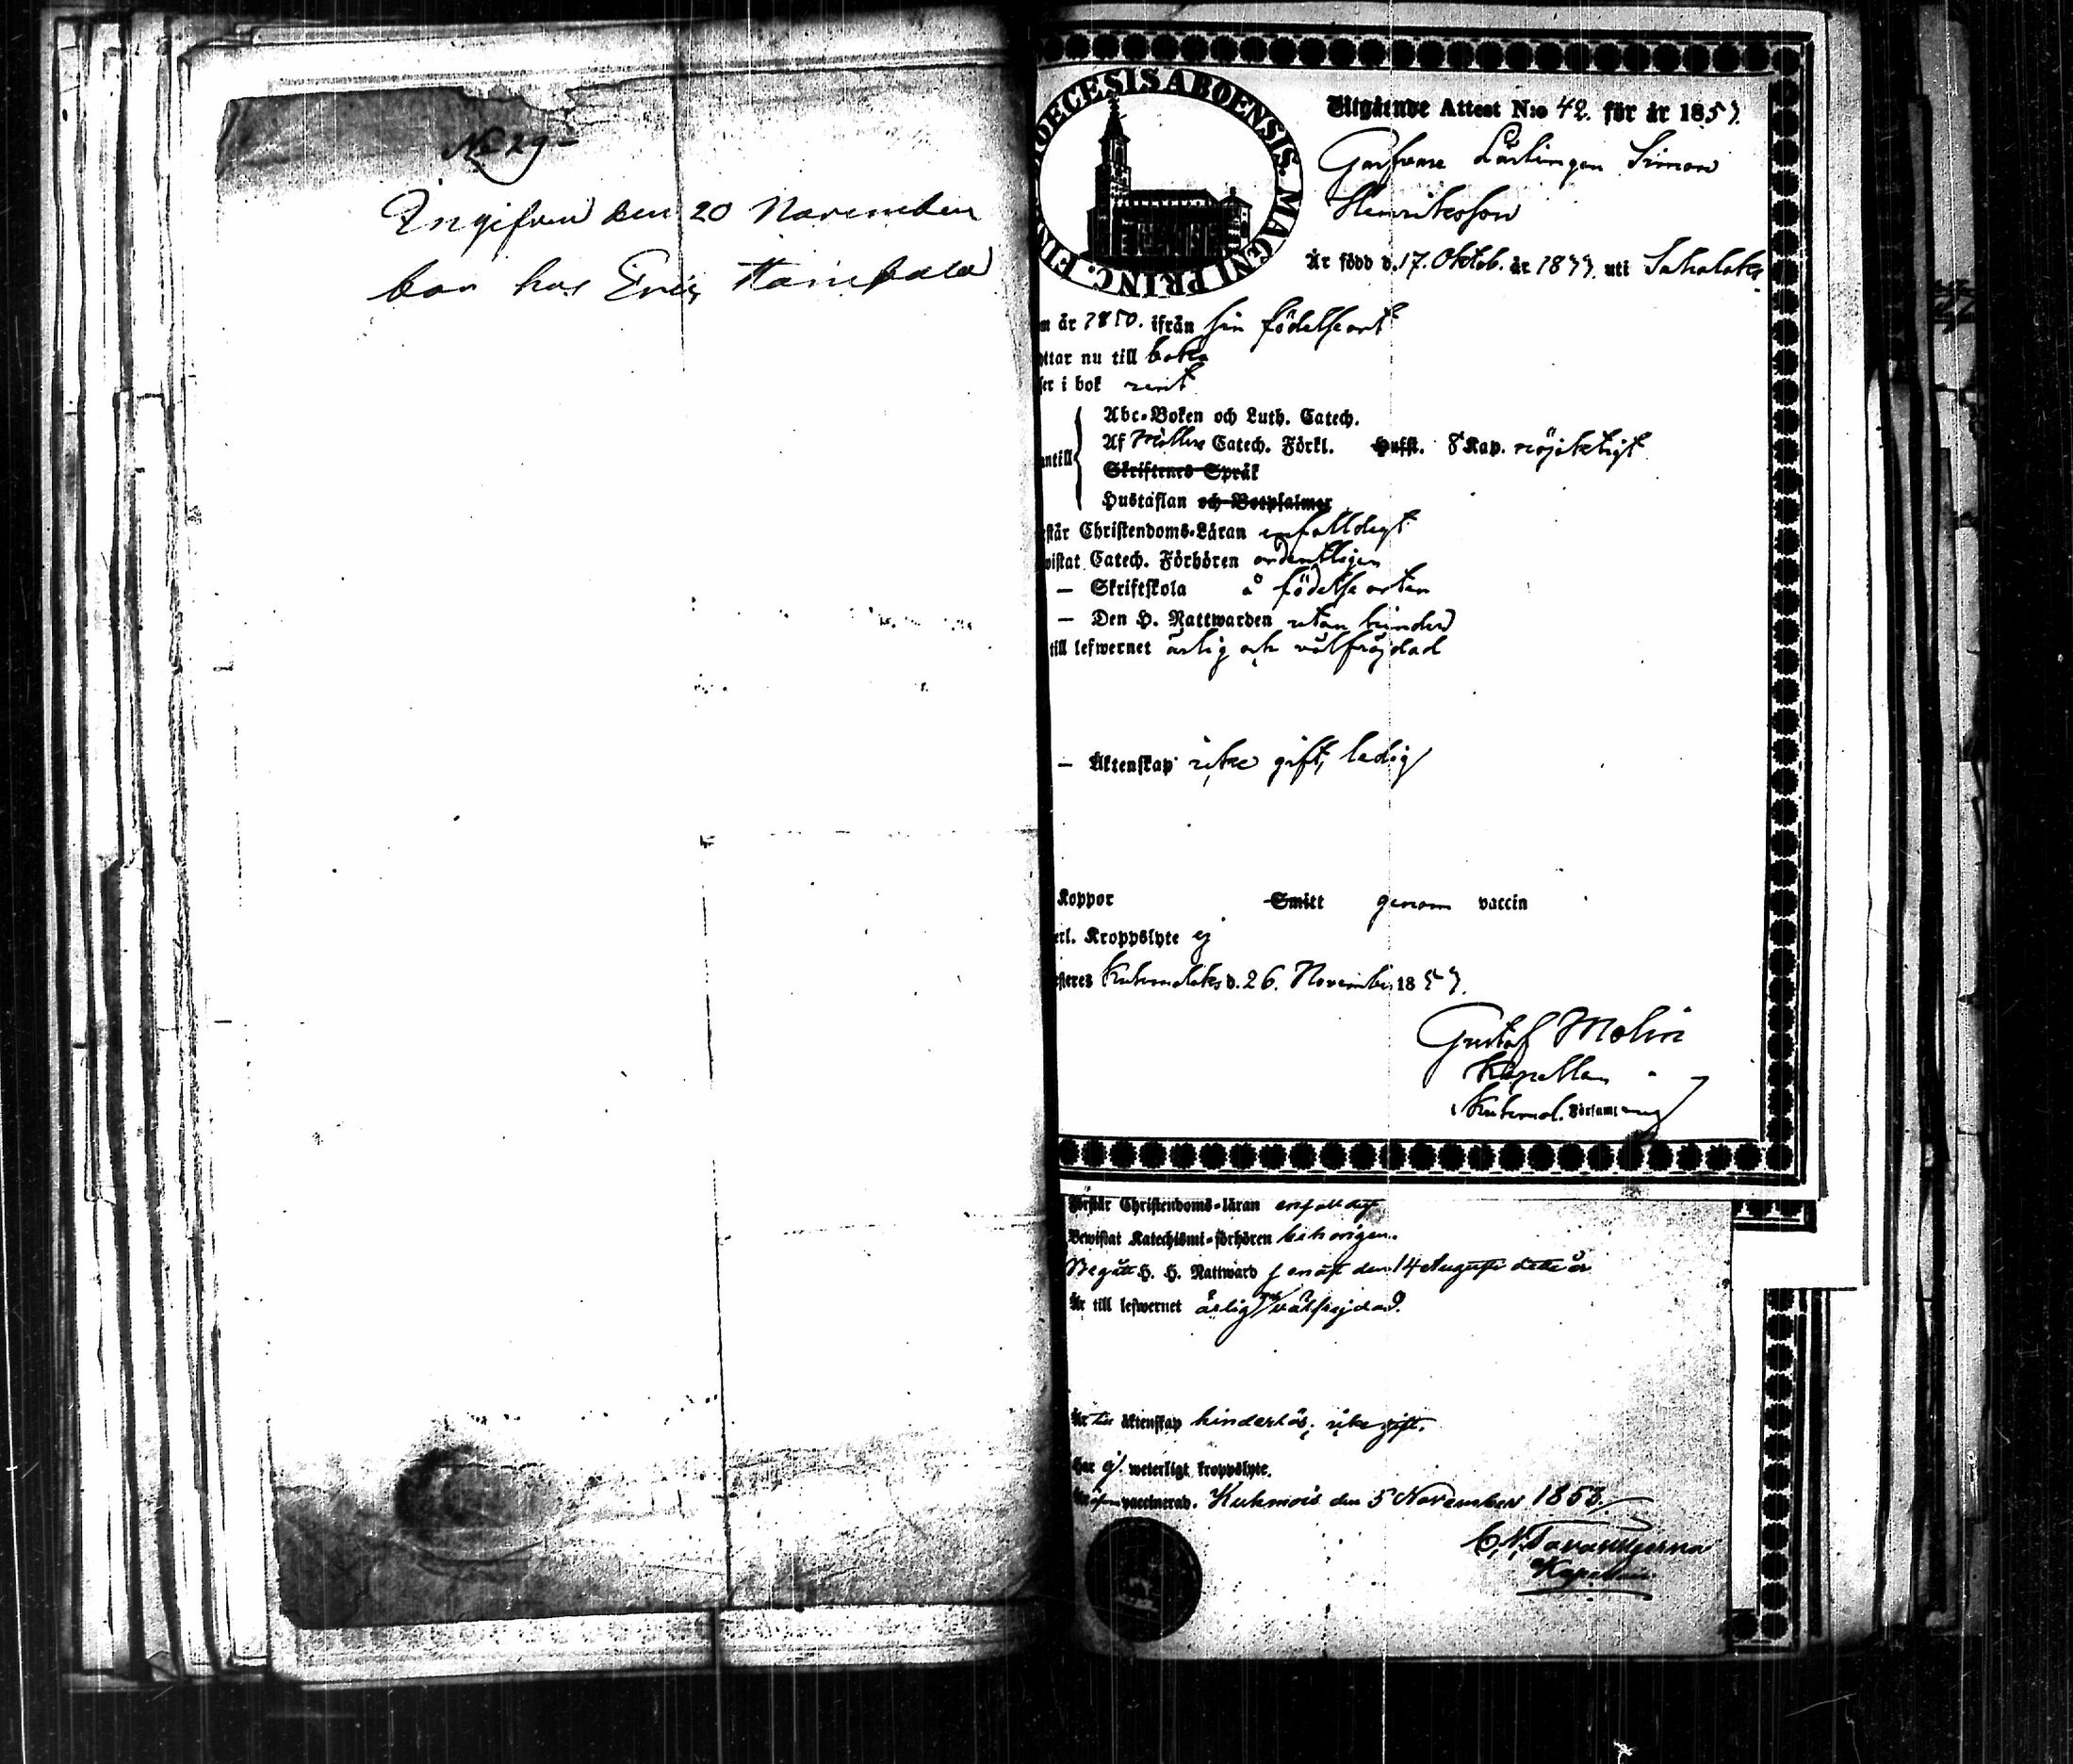 No 29
Ingifven den 20 November
bor hos Eric
DIOECESIS ABOENSIS. MAGNI PRINC. FIN
Utgående Attest N:o 42. för år 1857.
Garfvare Lärlingen Simon
Henriksson
Är född d. 17. Oktob. år 1833. uti Sahalaks
m år 1850. ifrån sin födelseort
ttar nu till
ser i bok rent
Abc-Boken och Luth. Catech.
Af Möllers Catech. Förkl. Husst. 8 Kap. nöjaktigt
antill
Skriftenes Språk
Hustaflan och Botpsalmer
står Christendoms-Läran enfalldigt
vistat Catech. Förhören ordentligen
— Skriftskola å födelse orten
— Den H. Nattwarden utan hinder
till lefwernet ärlig och välfräjdad
— Äktenskap icke gift, ledig
Koppor Smitt genom vaccin
erl. Kroppslyte ej
steres Kuhmalaks d. 26. November 1857.
Gustaf Molin
Kapellan
Kuhmal. Församling
Förstår Christendoms-läran enfalldigt
Bewistat Katechismi-förhören behörigen.
Begått H. H. Nattward senast den 14 Augusti detta år
Är till lefwernet ärlig och välfrejdad.
Är till äktenskap hinderlös, icke gift.
Har ej weterligt kroppslyte.
Är vaccinerad. Kuhmois den 5 November 1853.
Kapellan